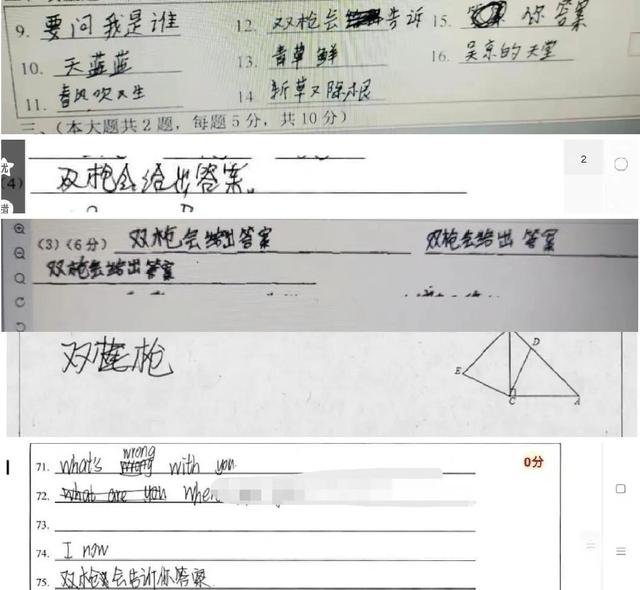 9. 要问我是谁 12. 双枪会告诉 15. 你答案
10. 天蓝蓝 13. 青草鲜 16. 吴京的天堂
11. 春风吹又生 14 斩草又除根
三、(本大题共2题，每题5分，共10分)
2
(4) 双枪会给出答案。
(3)(6分) 双枪会给出答案 双枪会给出答案
双枪会给出答案
双枪
D
E
C A
71. what's wrong with you 0分
72. what are you when
73.
74. I now
75. 双枪会告诉你答案